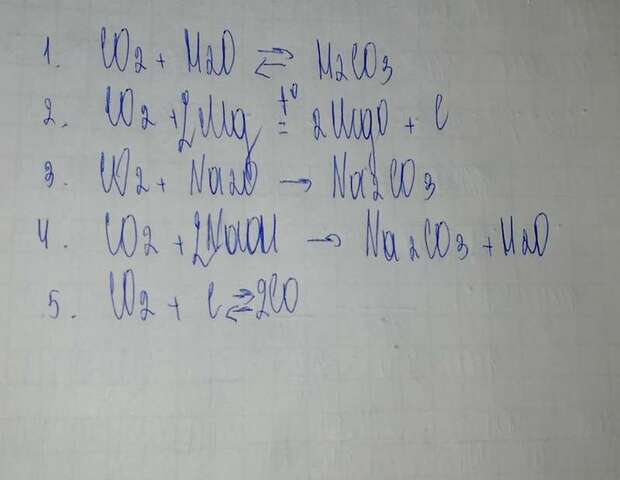 1. CO2 + H2O ⇄ H2CO3
2. CO2 + 2Mg t° = 2MgO + C
3. CO2 + Na2O → Na2CO3
4. CO2 + 2NaOH → Na2CO3 + H2O
5. CO2 + C ⇄ 2CO